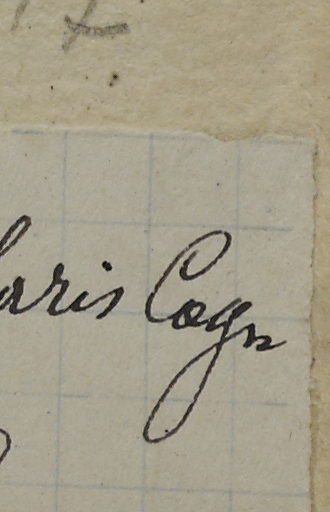 laris Cogn